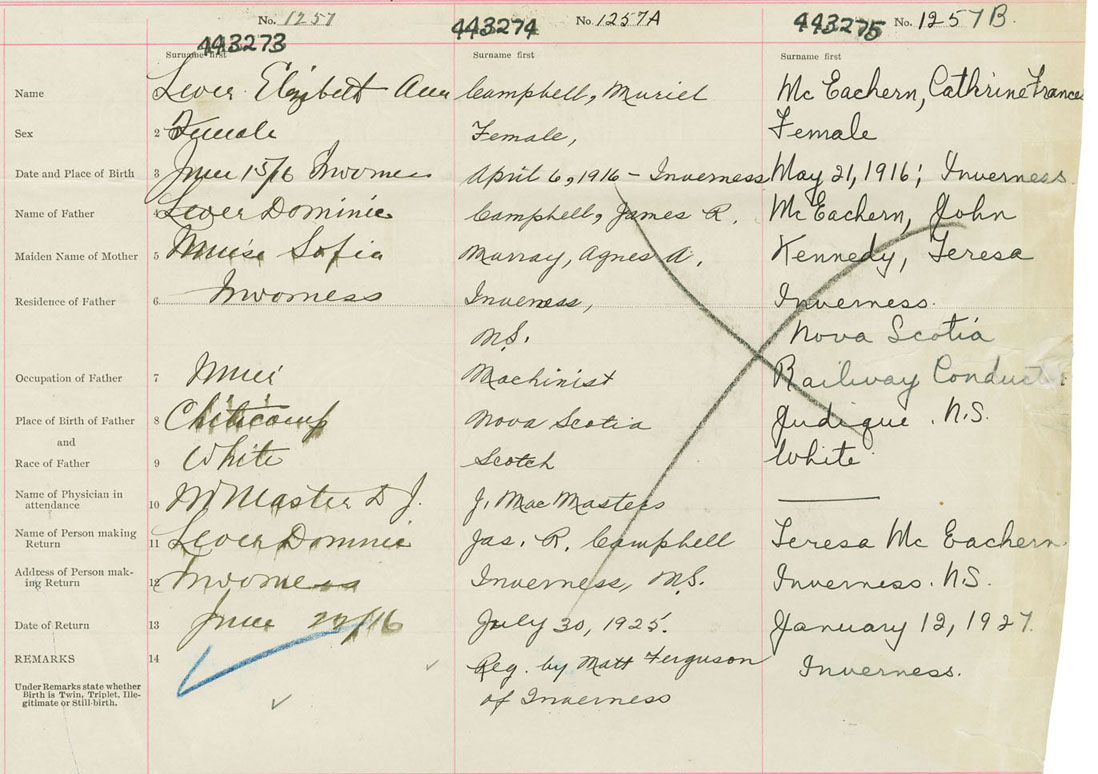 No. 1257 No. 1257A No. 1257B.
443273 443274 443275
Surname first Surname first Surname first
Name Lever Elizibeth Ann Campbell, Muriel Mc Eachern, Cathrine Frances
Sex 2 Female Female, Female
Date and Place of Birth 3 June 15/16 April 6, 1916 - Inverness May 21, 1916; Inverness
Name of Father 4 Lever Dominic Campbell, James R. Mc Eachern, John
Maiden Name of Mother 5 Sofia Murray, Agnes A, Kennedy, Teresa
Residence of Father 6 Inverness, Inverness.
N.S. Nova Scotia
Occupation of Father 7 Machinist Railway Conduct
Place of Birth of Father 8 Cheticamp Nova Scotia Judique . N.S.
and
Race of Father 9 White Scotch White
Name of Physician in
attendance 10 McMaster D J. J. MacMasters
Name of Person making
Return 11 Lever Dominic Jas. R. Campbell Teresa Mc Eachern
Address of Person mak-
ing Return 12 Inverness, N.S. Inverness. N.S.
Date of Return 13 June /16 July 30, 1925. January 12, 1927.
REMARKS 14 Reg. by Matt Ferguson Inverness.
Under Remarks state whether
Birth is Twin, Triplet, Ille-
gitimate or Still-birth.
of Inverness